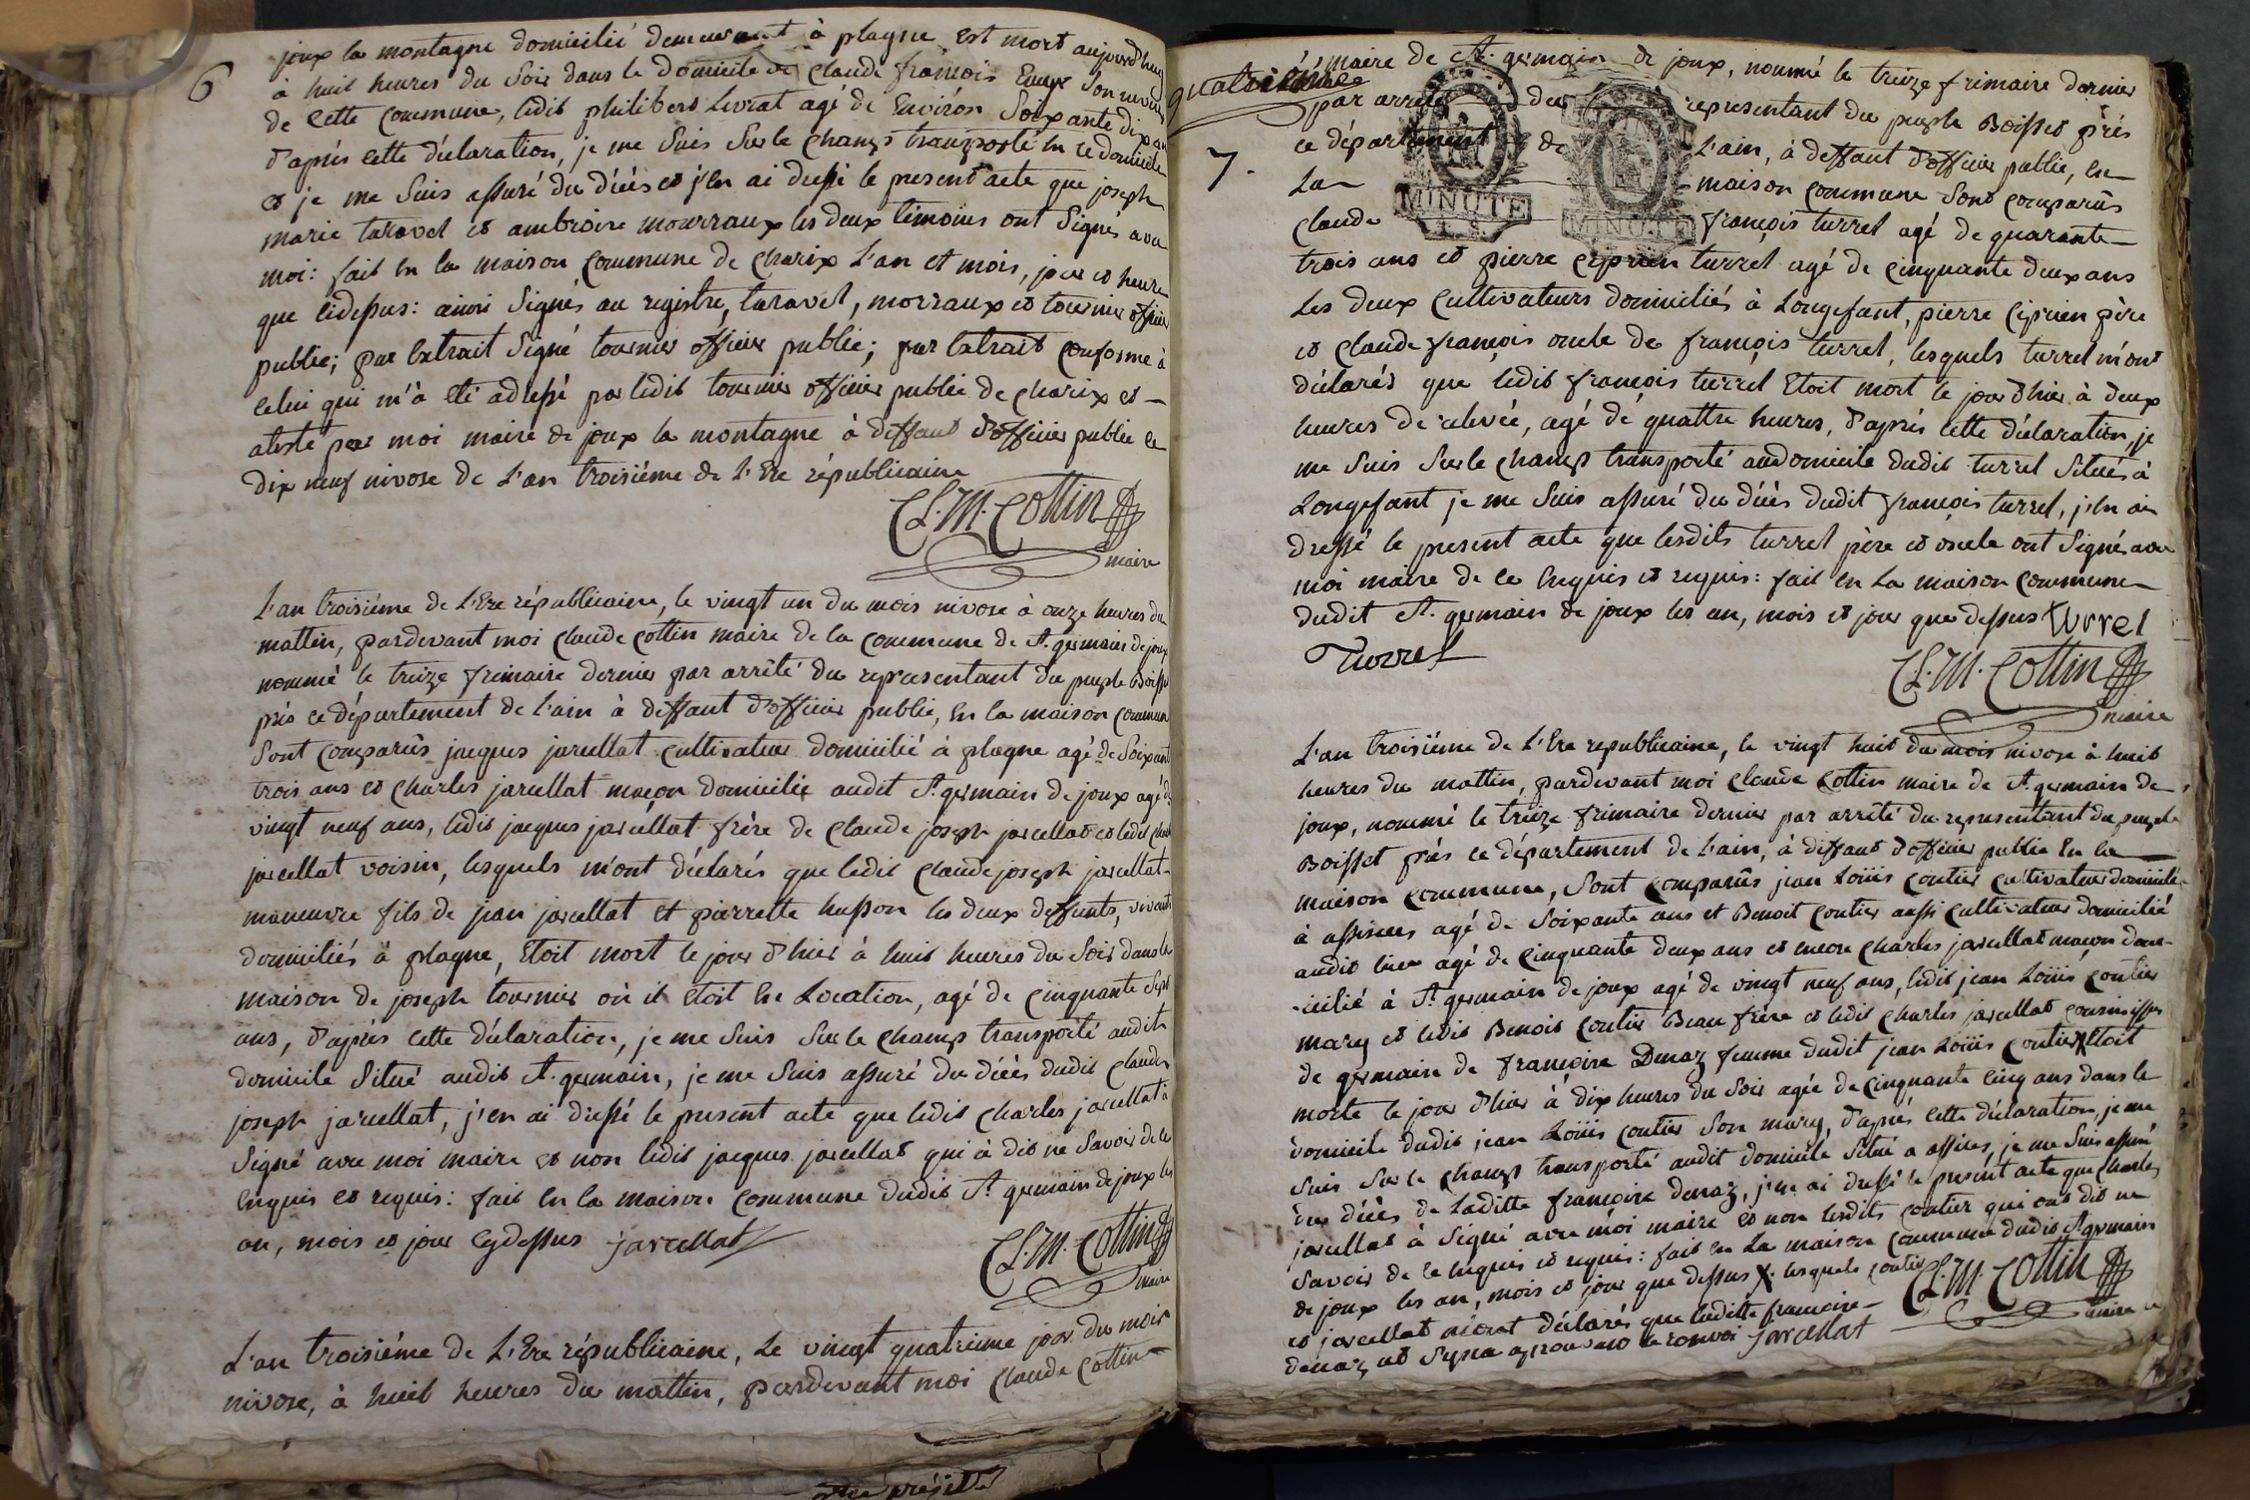 6
joux la montagne domicilié demeurant à plagne est mort aujourd'huy
à huit heures du soir dans le domicile de Claude françois son neveu
de cette commune, ledit philibert Livrat agé de Environ Soixante dix ans
d'aprés cette déclaration, je me suis sur le champs transporté en ce domicile
et je me suis assuré du décés et j'en ai dressé le present acte que joseph
marie taravel et ambroise mourraux les deux temoins ont signés avec
moi: fait en la maison commune de Charix l'an et mois, jour et heure
que cidessus: ainsi signés au registre, taravel, morraux et tournier officier
public; par Extrait signé tournier officier public; par Extrait conforme à
celui qui m'à été adressé par ledit tournier officier public de Charix et
atesté par moi maire de joux la montagne à deffaut d'officier public le
dix neuf nivose de l'an troisiéme de l'Ere républicaine
Cl. M. Cottin
maire
L'an troisiéme de l'Ere républicaine, le vingt un du mois nivose à onze heures du
mattin, pardevant moi Claude Cottin maire de la commune de St. germain de joux
nommé le treize frimaire dernier par arrêté du representant du peuple Boisset
prés ce département de l'ain à deffaut d'officier public, En la maison commune
Sont comparûs jacques jarcellat cultivateur domicilié à plagne agé de Soixante
trois ans et Charles jarcellat maçon domicilie audit St. germain de joux agé de
vingt neuf ans, ledit jacques jarcellat frére de Claude joseph jarcellat et ledit Charles
jarcellat voisin, lesquels m'ont déclarés que ledit Claude joseph jarcellat
maneuvre fils de jean jarcellat et pierrette husson les deux deffunts, vivants
domiciliés à plagne, Etoit mort le jour d'hier à huit heures du soir dans la
maison de joseph tournier où il Etoit En Location, agé de cinquante sept
ans, d'aprés cette déclaration, je me suis sur le champs transporté audit
domicile situé audit St. germain, je me suis assuré du décés dudit Claude
joseph jarcellat, j'en ai dressé le present acte que ledit Charles jarcellat à
signé avec moi maire et non ledit jacques jarcellat qui à dit ne savoir de ce
Enquis et requis: fait En la maison commune dudit St. germain de joux les
an, mois et jour cy dessus jarcellat
Cl. M. Cottin
maire
L'an troisiéme de l'Ere républicaine, Le vingt quatrieme jour du mois
nivose, à huit heures du mattin, pardevant moi Claude Cottin
quatriéme
7.
maire de St. germain de joux, nommé le treize frimaire dernier
par arreté du representant du peuple Boisset prés
ce département de L'ain, à deffaut d'officier public, En
La maison commune sont comparûs
Claude françois turrel agé de quarante
MINUTE
MINUTE
trois ans et pierre ciprien turrel agé de cinquante deux ans
Les deux cultivateurs domiciliés à Longefant, pierre ciprien pére
et Claude françois oncle de françois turrel, lesquels turrel m'ont
déclarés que ledit françois turrel Etoit mort le jour d'hier à deux
heures de relevée, agé de quattre heures, d'aprés cette déclaration, je
me suis sur le champs transporté audomicile dudit turrel situé à
Longefant je me suis assuré du décés dudit françois turrel, j'en ai
dressé le present acte que lesdits turrel pére et oncle ont signés avec
moi maire de ce Enquis et requis: fait en La maison commune
dudit St. germain de joux les an, mois et jour que dessus turrel
Turrel
Cl. M. Cottin
maire
L'an troisiéme de l'Ere republicaine, le vingt huit du mois nivose à huit
heures du mattin, pardevant moi Claude Cottin maire de St. germain de
joux, nommé le treize frimaire dernier par arrêté du representant du peuple
Boisset prés ce département de l'ain, à deffaut d'officier public En la
maison commune, sont comparûs jean Loüis coutier cultivateur domicilié
à agé de soixante ans et Benoit coutier aussi cultivateur domicilié
audit lieu agé de cinquante deux ans et encore Charles jarcellat maçon dom-
icilié à St. germain de joux agé de vingt neuf ans, ledit jean Loüis coutier
mary et ledit Benoit coutier Beau frére et ledit Charles jarcellat cousin issu
de germain de françoise Denaz femme dudit jean Loüis coutier X Etoit
morte le jour d'hier à dix heures du soir agée de cinquante cinq ans dans le
domicile dudit jean Loüis coutier son mary, d'aprés cette déclaration, je me
suis sur le champs transporté audit domicile situé a, je me suis assuré
du décés de Laditte françoise denaz, j'en ai dressé le present acte que Charles
jarcellat à signé avec moi maire et non lesdits coutier qui ont dit ne
savoir de ce Enquis et requis: fait En La maison commune dudit St. germain
de joux les an, mois et jour que dessus X. lesquels coutier
et jarcellat m'ont déclarés que laditte françoise
denaz jarcellat
Cl. M. Cottin
maire